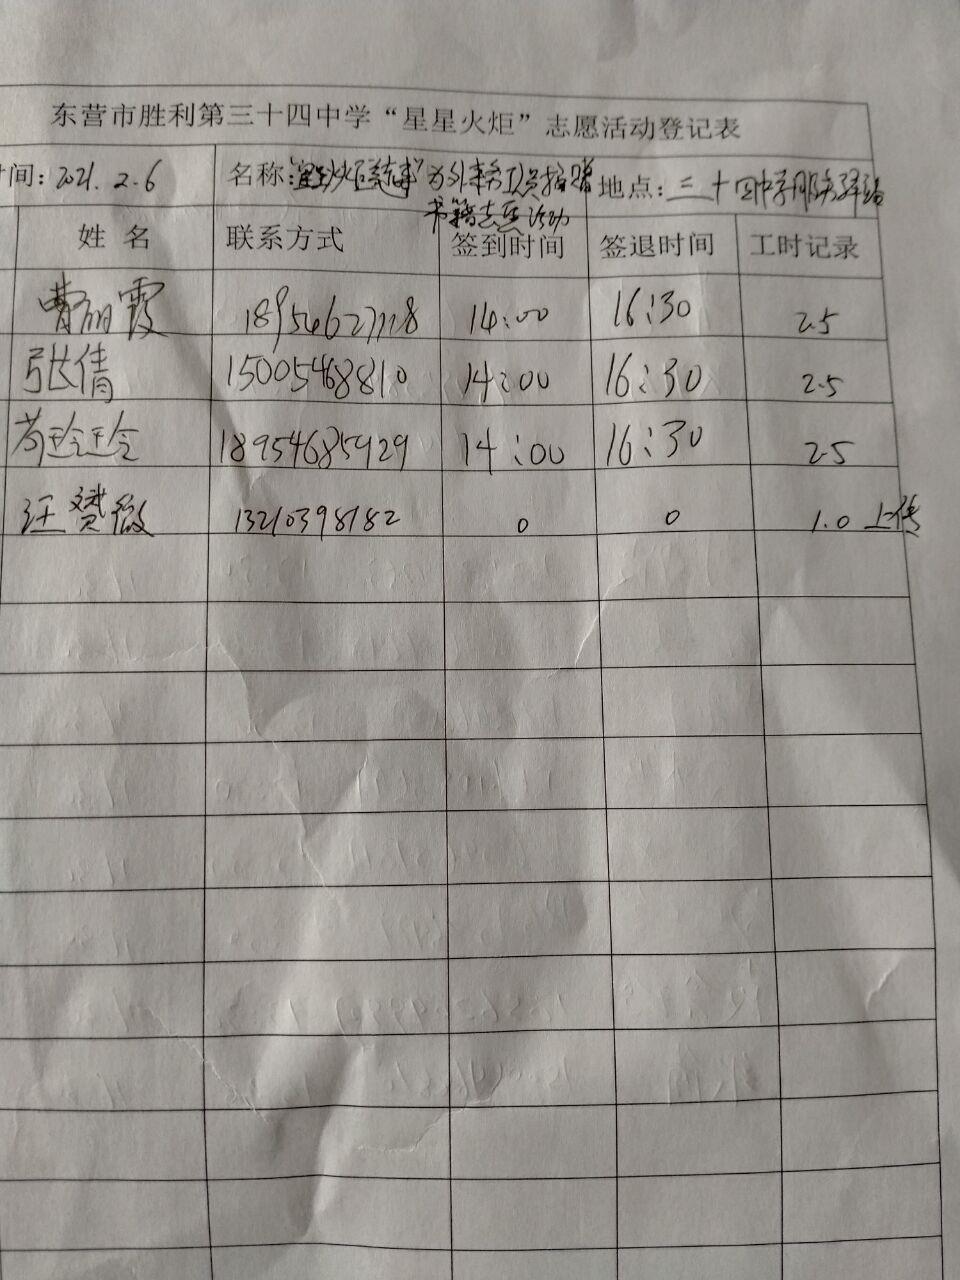 东营市胜利第三十四中学“星星火炬”志愿活动登记表
时间：2021.2.6 名称：“星星火炬 为外来务工员捐赠 地点：三十四中学服务驿站
书籍志愿活动
姓名 联系方式 签到时间 签退时间 工时记录
曹丽霞 18954627118 14:00 16:30 2.5
张倩 15005468810 14:00 16:30 2.5
苟玲玲 18954685929 14:00 16:30 2.5
汪赟薇 13210398182 0 0 1.0 上传